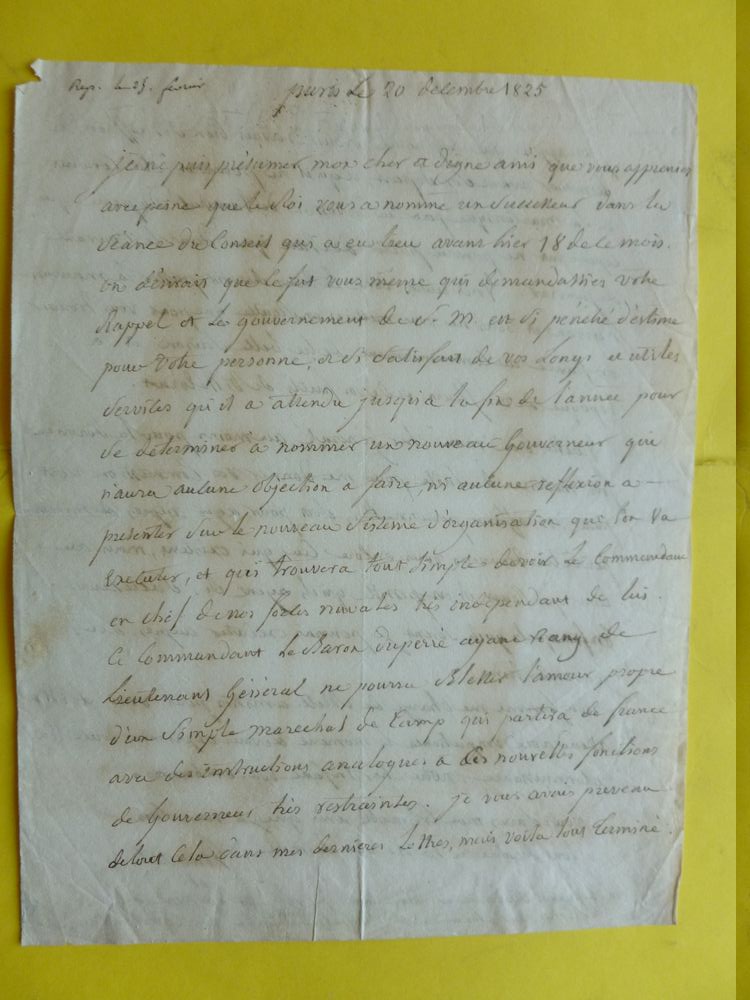 Rep. le 25. fevrier
paris Le 20 decembre 1825
je ne puis présumer mon cher et digne ami que vous appreniez
avec peine que le Roi vous a nommé un successeur dans la
séance du Conseil qui a eu lieu avant hier 18 de ce mois.
on désirait que ce fut vous même qui demandassiez votre
Rappel et le gouvernement de S. M. est si pénétré d'estime
pour votre personne, et si satisfait de vos longs et utiles
services qu'il a attendu jusqu'à la fin de l'année pour
se determiner a nommer un nouveau Gouverneur qui
n'aura aucune objection a faire, ni aucune reflexion a
présenter sur le nouveau sistème d'organisation que l'on va
Executer, et qui trouvera tout simple de voir le Commandant
en chef de nos forces navales très independant de lui.
Ce Commandant Le Baron duperré ayant Rang de
Lieutenant Général ne pourra blesser l'amour propre
d'un simple marechal de Camp qui partira de france
avec des instructions analogues a des nouvelles fonctions
de Gouverneur très restraintes. je vous avais prevenu
de tout cela dans mes dernieres Lettres, mais voila tout terminé.